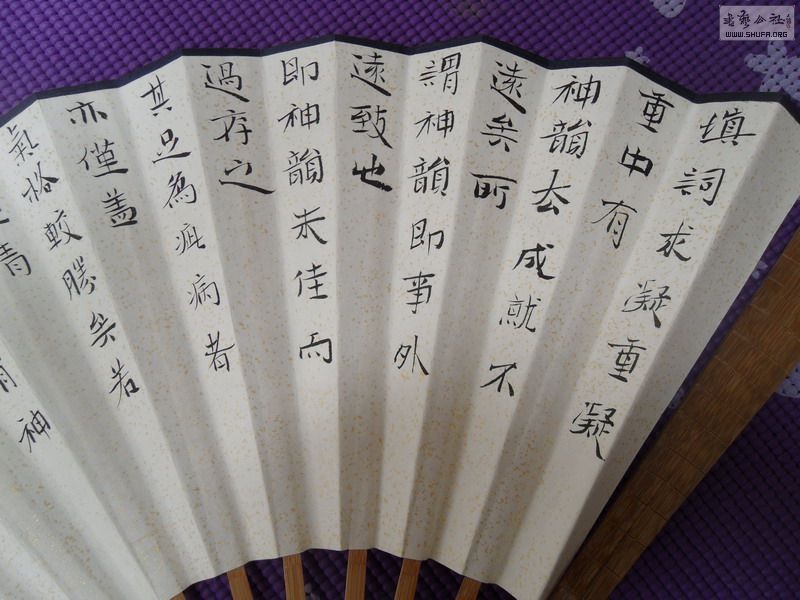 填詞求凝重凝
重中有
神韻去成就不
遠矣所
謂神韻即事外
遠致也
即神韻未佳而
過存之
其足為疵病者
亦僅盖
氣格較勝矣若
神
書藝公社
WWW.SHUFA.ORG